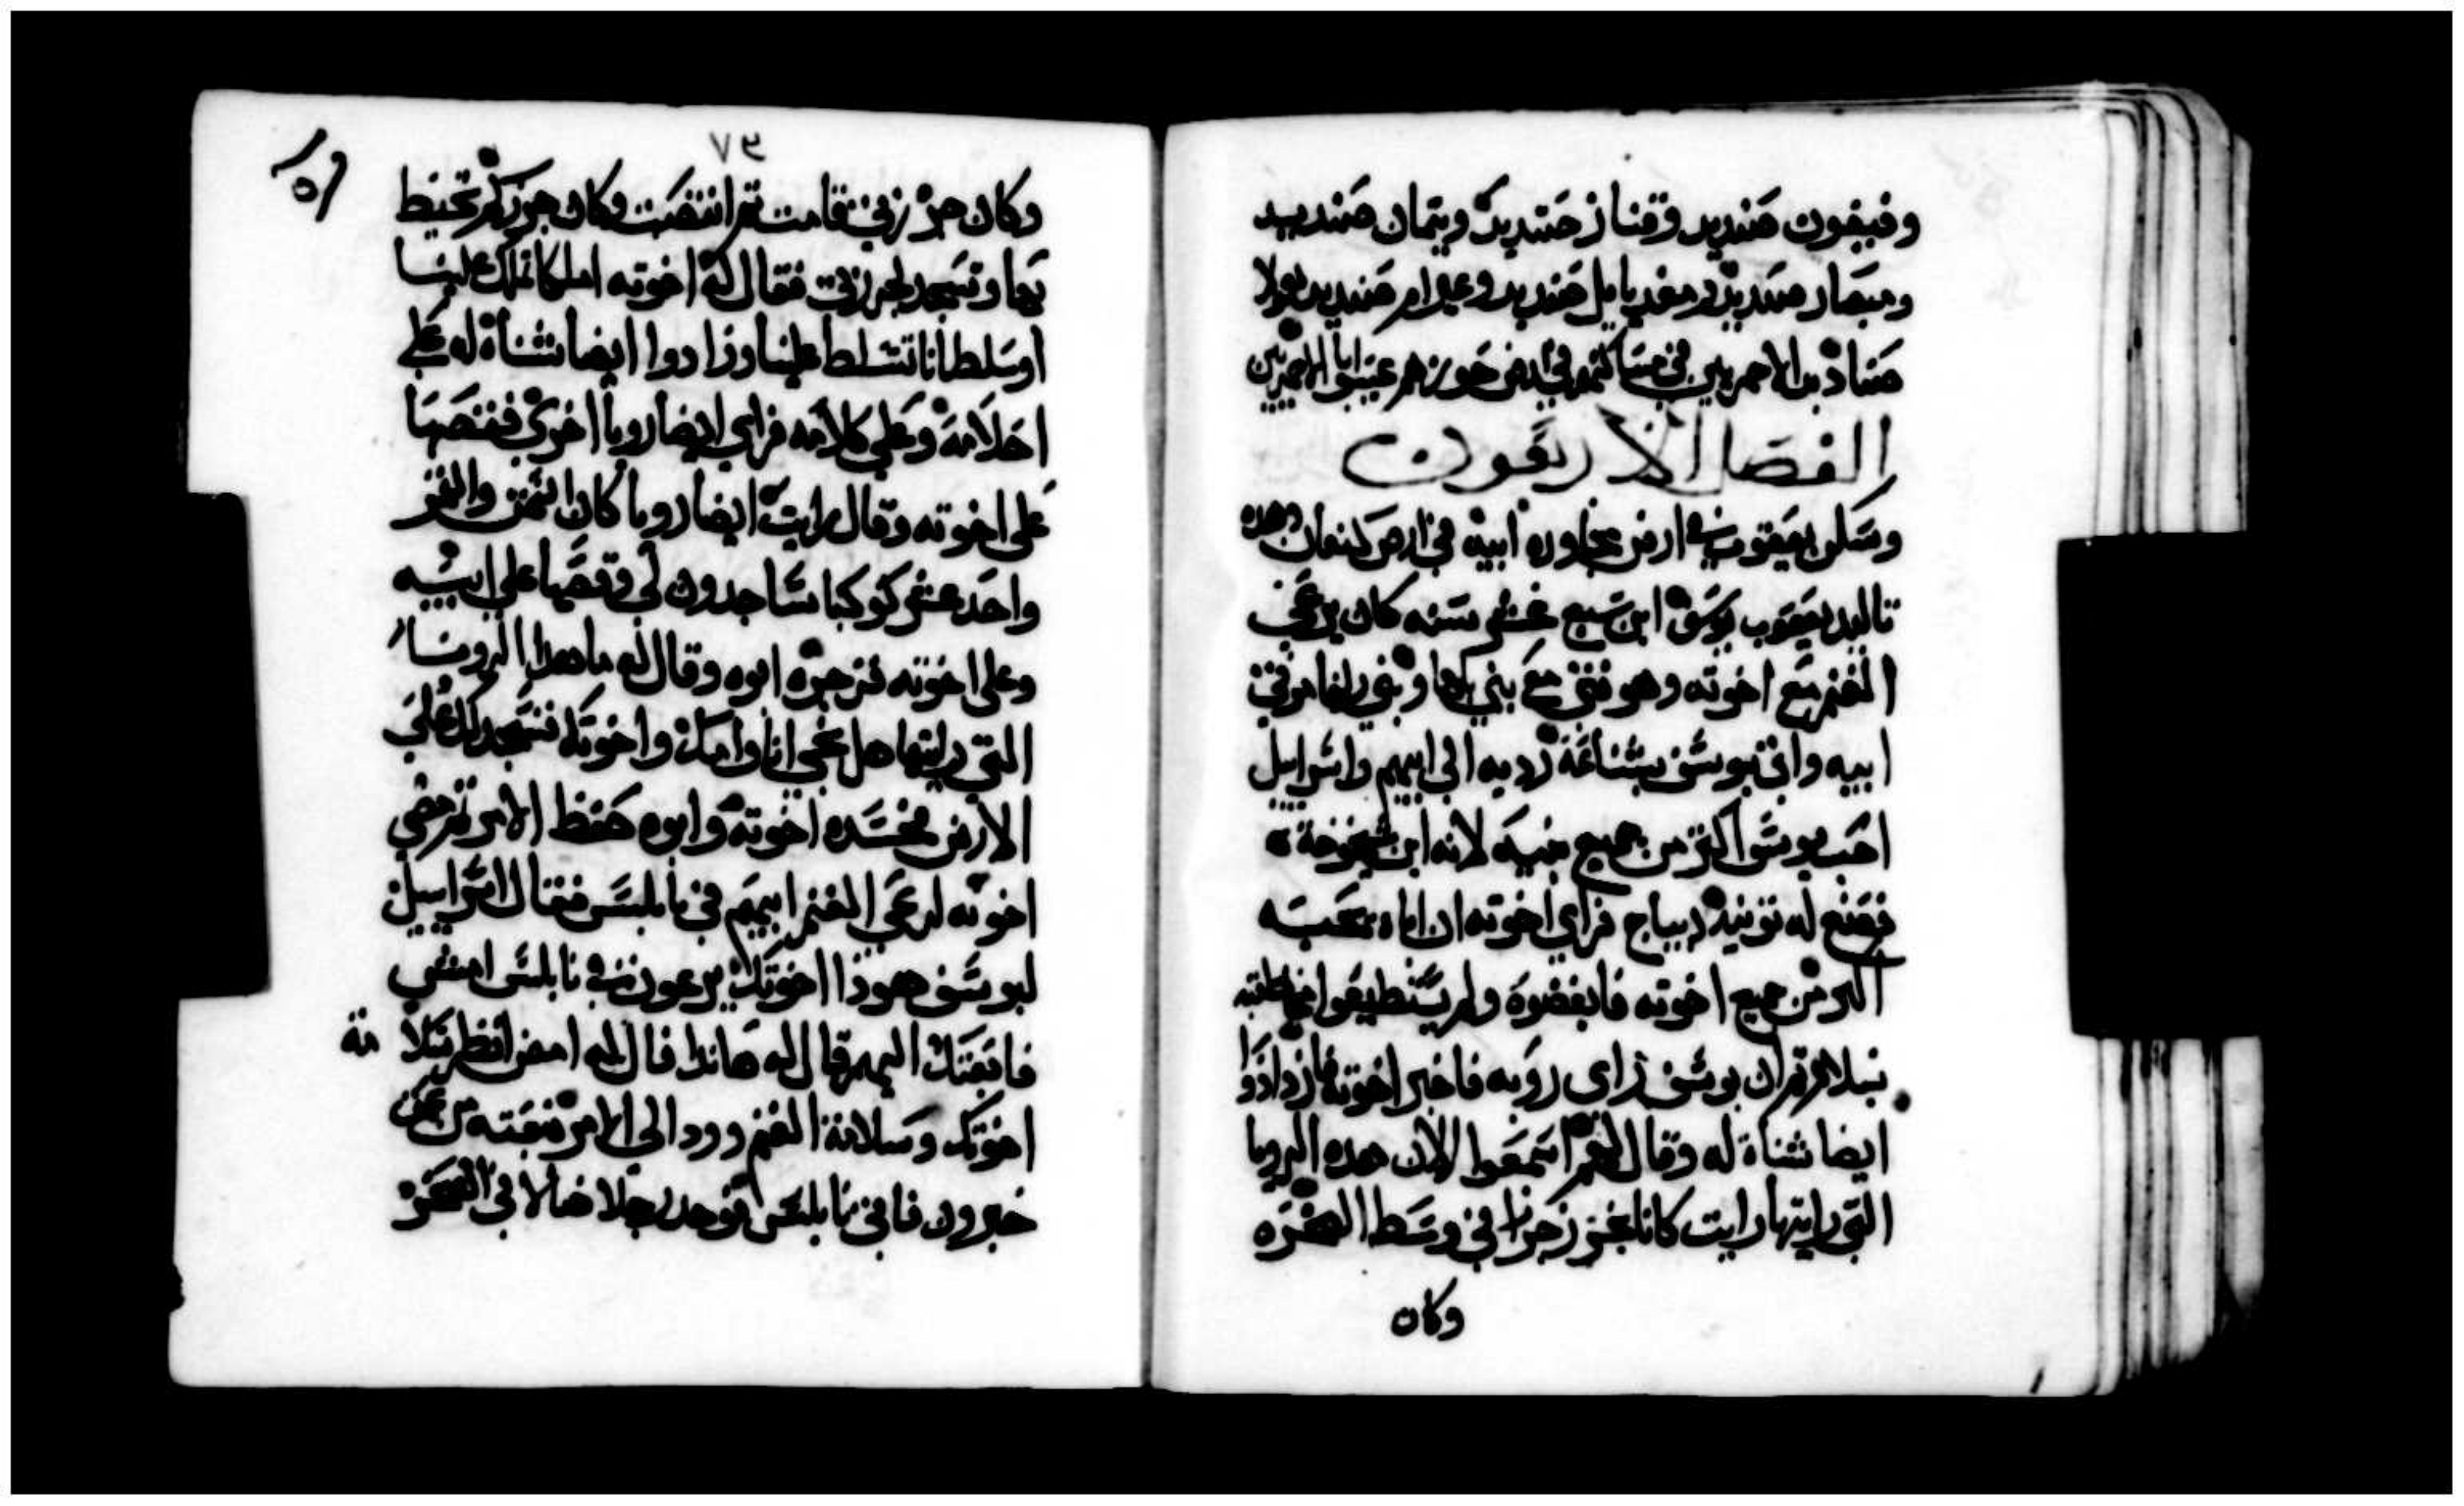 وفيفون صنديد وقناز صنديد وتيمان صنديد
ومبصار صنديد ومغديايل صنديد وعيرام صنديد هولا
صناديد الاحمريين في مساكنهم في ارض حوزهم عيسوا ابا الاحمريين
الفصل الاربعون
وسكن يعقوب في ارض مجاورة ابيه في ارض كنعان وهده
تاليد يعقوب يوسف ابن سبع عشر سنه كان يرعي
الغنم مع اخوته وهو فتي مع بني بلها وبني زلفا مرتي
ابيه واتي يوسف بشناعة رديه الي ابيهم واسراييل
احب يوسف اكثر من جميع بنيه لانه ابن شيخوخة
فصنع له تونية ديباج فراي اخوته ان اباه يحبه
اكثر من جميع اخوته فابغضوه ولم يستطيعوا مخاطبته
بسلام ثم ان يوسف راى رويه فاخبر اخوته فازدادوا
ايضا شناة له وقال لهم اسمعوا الان هده الرويا
التي رايتها رايت كانا نحزم حزما في وسط الصحره
وكان
٧٩
وكان حزمتي قامت ثم انتصبت وكان حزمكم تحيط
بها وتسجد لحزمتي فقال له اخوته املكا تملك علينا
اوسلطانا تتسلط علينا وزادوا ايضا شناة له علي
احلامه وعلي كلامه فراي ايضا رويا اخري فقصها
على اخوته وقال رايت ايضا رويا كان الشمس والقمر
واحد عشر كوكبا ساجدون لي وقصها علي ابيه
وعلى اخوته فزجره ابوه وقال له ما هدا الرويا
التي رايتها هل نجي انا وامك واخوتك فنسجد لك علي
الارض فحسده اخوته وابوه حفظ الامر ثم مضي
اخوته لرعي الغنم ابيهم في نابلس فقال اسراييل
ليوسف هوذا اخوتك يرعون في نابلس امضي
فابعثك اليهم قال له هاندا قال له امض انظر سلا مة
اخوتك وسلامة الغنم ورد الي الامر فبعثه من عمق
حبرون فاتي نابلس فوجد رجلا ضالا في الصحر